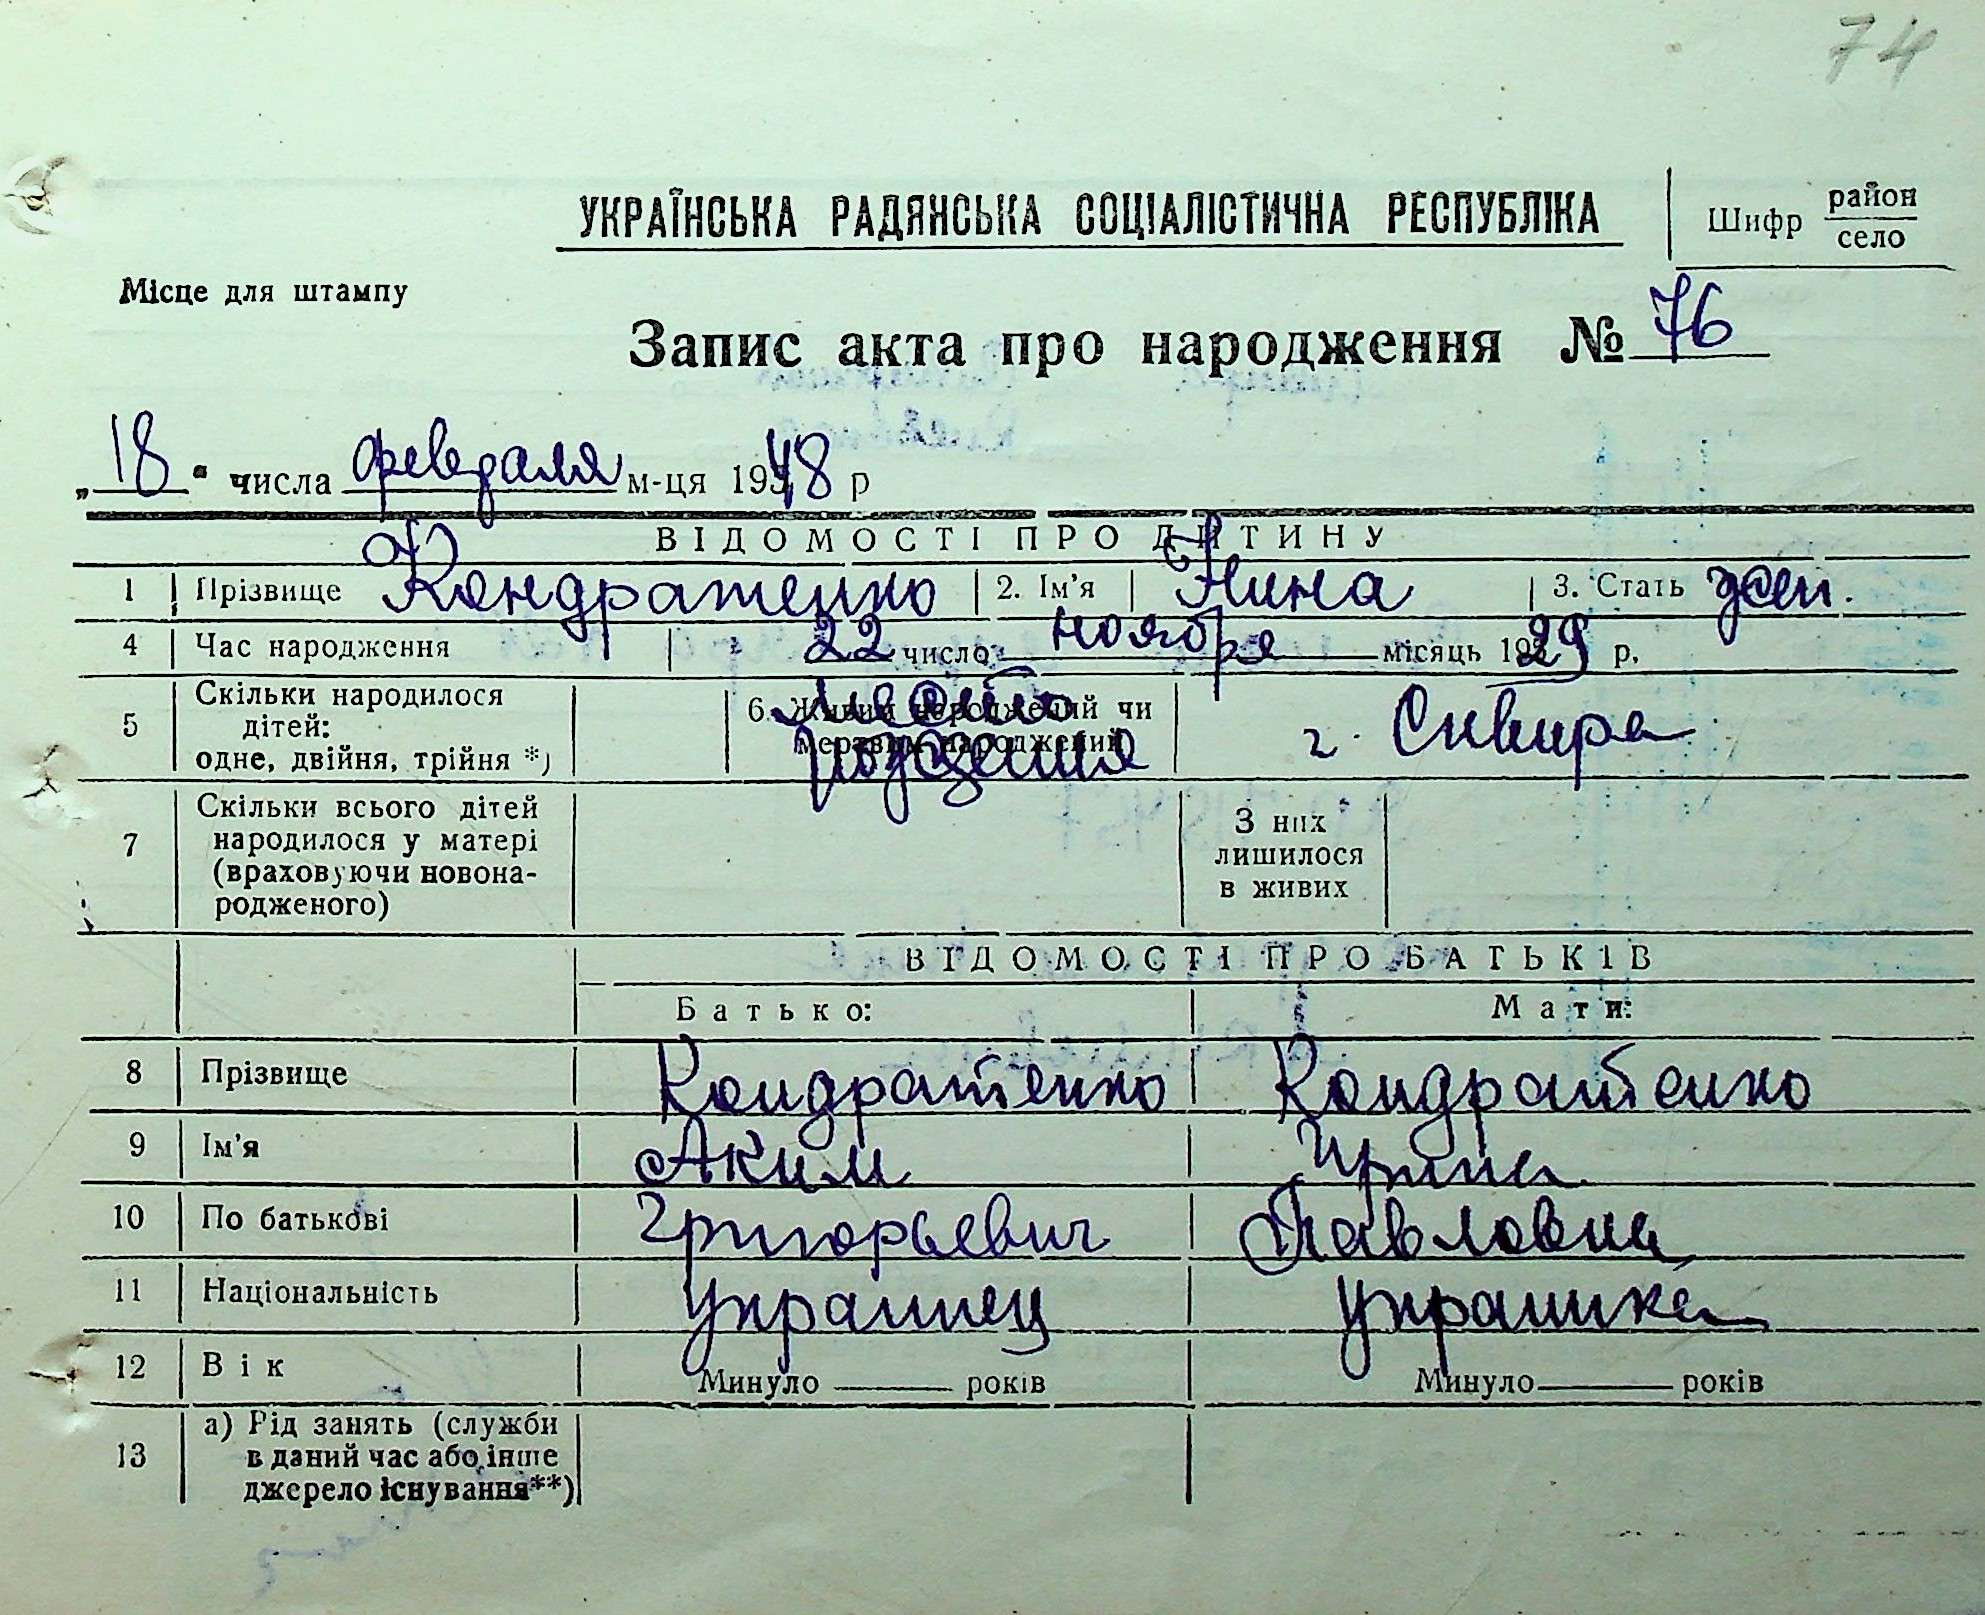 74
УКРАЇНСЬКА РАДЯНСЬКА СОЦІАЛІСТИЧНА РЕСПУБЛІКА
Шифр район
село
Місце для штампу
Запис акта про народження № 76
„18“ числа февраля м-ця 1948 р
ВІДОМОСТІ ПРО ДИТИНУ
1 Прізвище Кондратенко 2. Ім'я Нина 3. Стать жен.
4 Час народження 22 число ноября місяць 1929 р.
5 Скільки народилося дітей: одне, двійня, трійня *) 6. Живим народжений чи мертвим народжений место рождения г. Сквира
7 Скільки всього дітей народилося у матері (враховуючи новонародженого) З них лишилося в живих
ВІДОМОСТІ ПРО БАТЬКІВ
Батько: Мати:
8 Прізвище Кондратенко Кондратенко
9 Ім'я Аким Ирина
10 По батькові Григорьевич Павловна
11 Національність Украинец украинка
12 Вік Минуло років Минуло років
13 а) Рід занять (служби в даний час або інше джерело існування**)